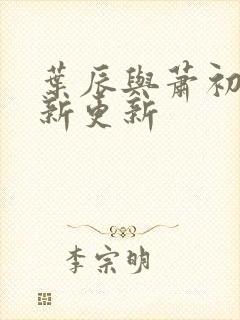 葉辰與蕭初
新更新
李宗明